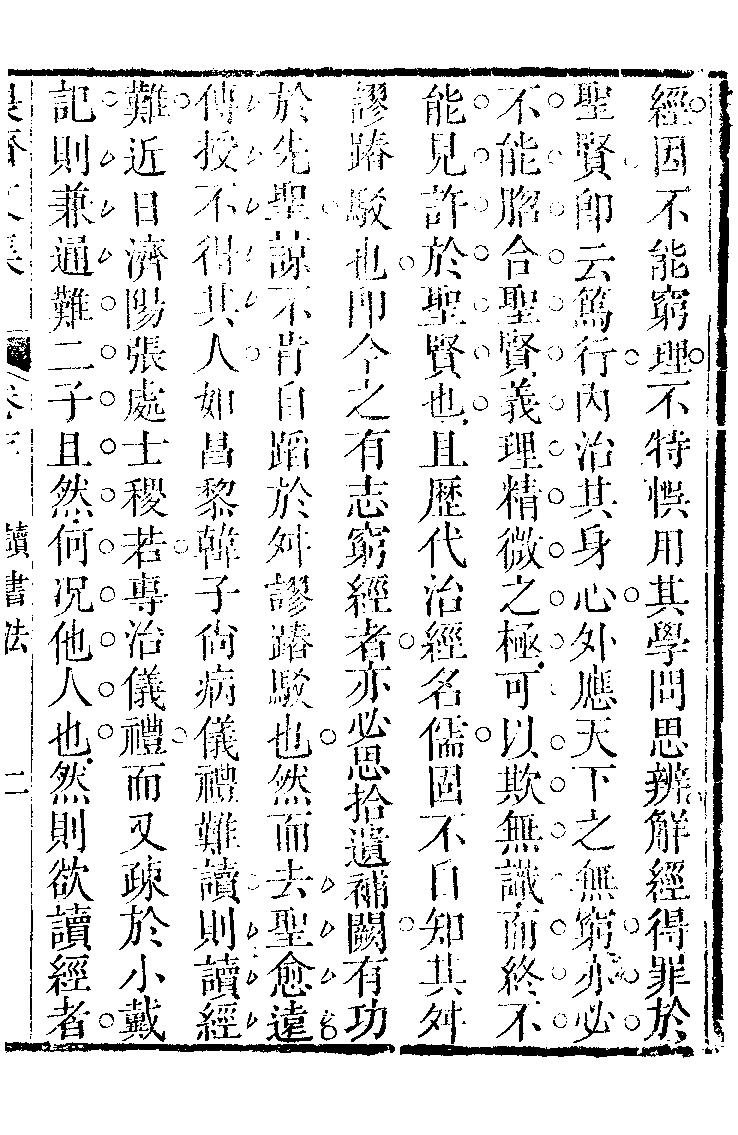 經因不能窮理不特悞用其學問思辨解經得罪於
聖賢卽云篤行內治其身心外應天下之無窮亦必
不能脗合聖賢義理精微之極可以欺無識而終不
能見許於聖賢也且歷代治經名儒固不自知其舛
謬踳駁也卽今之有志窮經者亦必思拾遺補闕有功
於先聖諒不肯自蹈於舛謬踳駁也然而去聖愈遠
傳授不得其人如昌黎韓子尙病儀禮難讀則讀經
難近日濟陽張處士稷若專治儀禮而又疎於小戴
記則兼通難二子且然何况他人也然則欲讀經者
讀書法
二